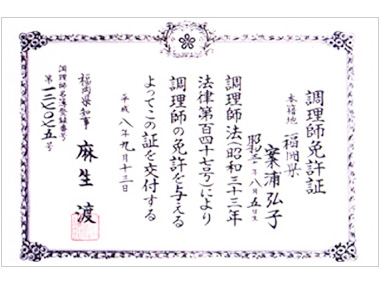 調理師免許証
本籍地 福岡県
案浦弘子
昭和三年八月五日生
調理師法(昭和三十三年
法律第百四十七号)により
調理師の免許を与える
よってこの証を交付する
平成八年九月十三日
福岡県知事 麻生渡
調理師名簿登録番号
第一三七〇七五号